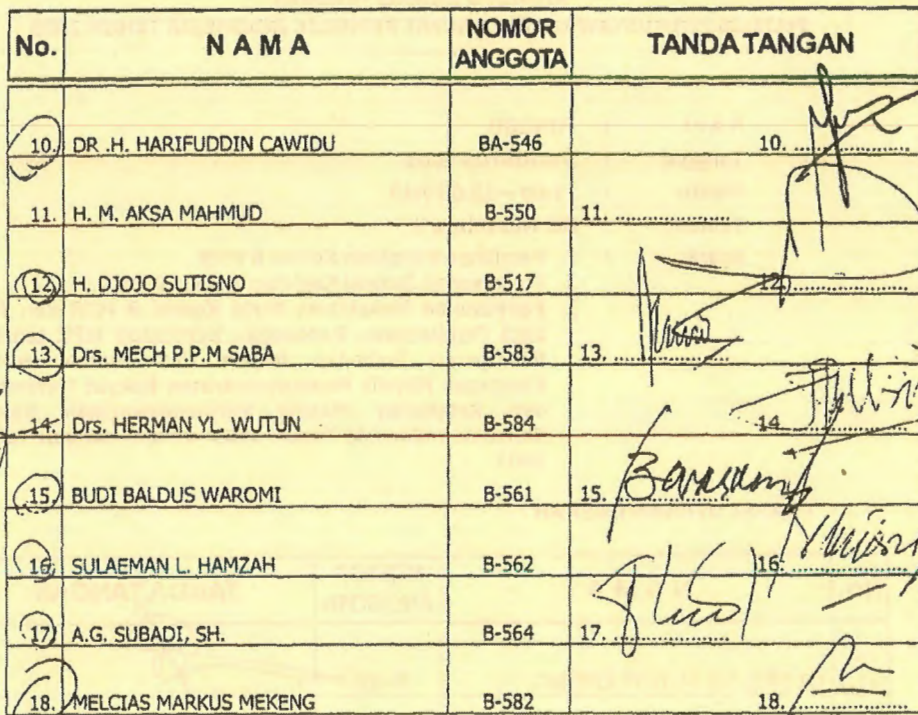 No. NAMA NOMOR ANGGOTA TANDA TANGAN
10. DR .H. HARIFUDDIN CAWIDU BA-546 10. ....................
11. H. M. AKSA MAHMUD B-550 11. ....................
12. H. DJOJO SUTISNO B-517 12. ....................
13. Drs. MECH P.P.M SABA B-583 13. ....................
14. Drs. HERMAN YL. WUTUN B-584 14. ....................
15. BUDI BALDUS WAROMI B-561 15. ....................
16. SULAEMAN L. HAMZAH B-562 16. ....................
17. A.G. SUBADI, SH. B-564 17. ....................
18. MELCIAS MARKUS MEKENG B-582 18. ....................